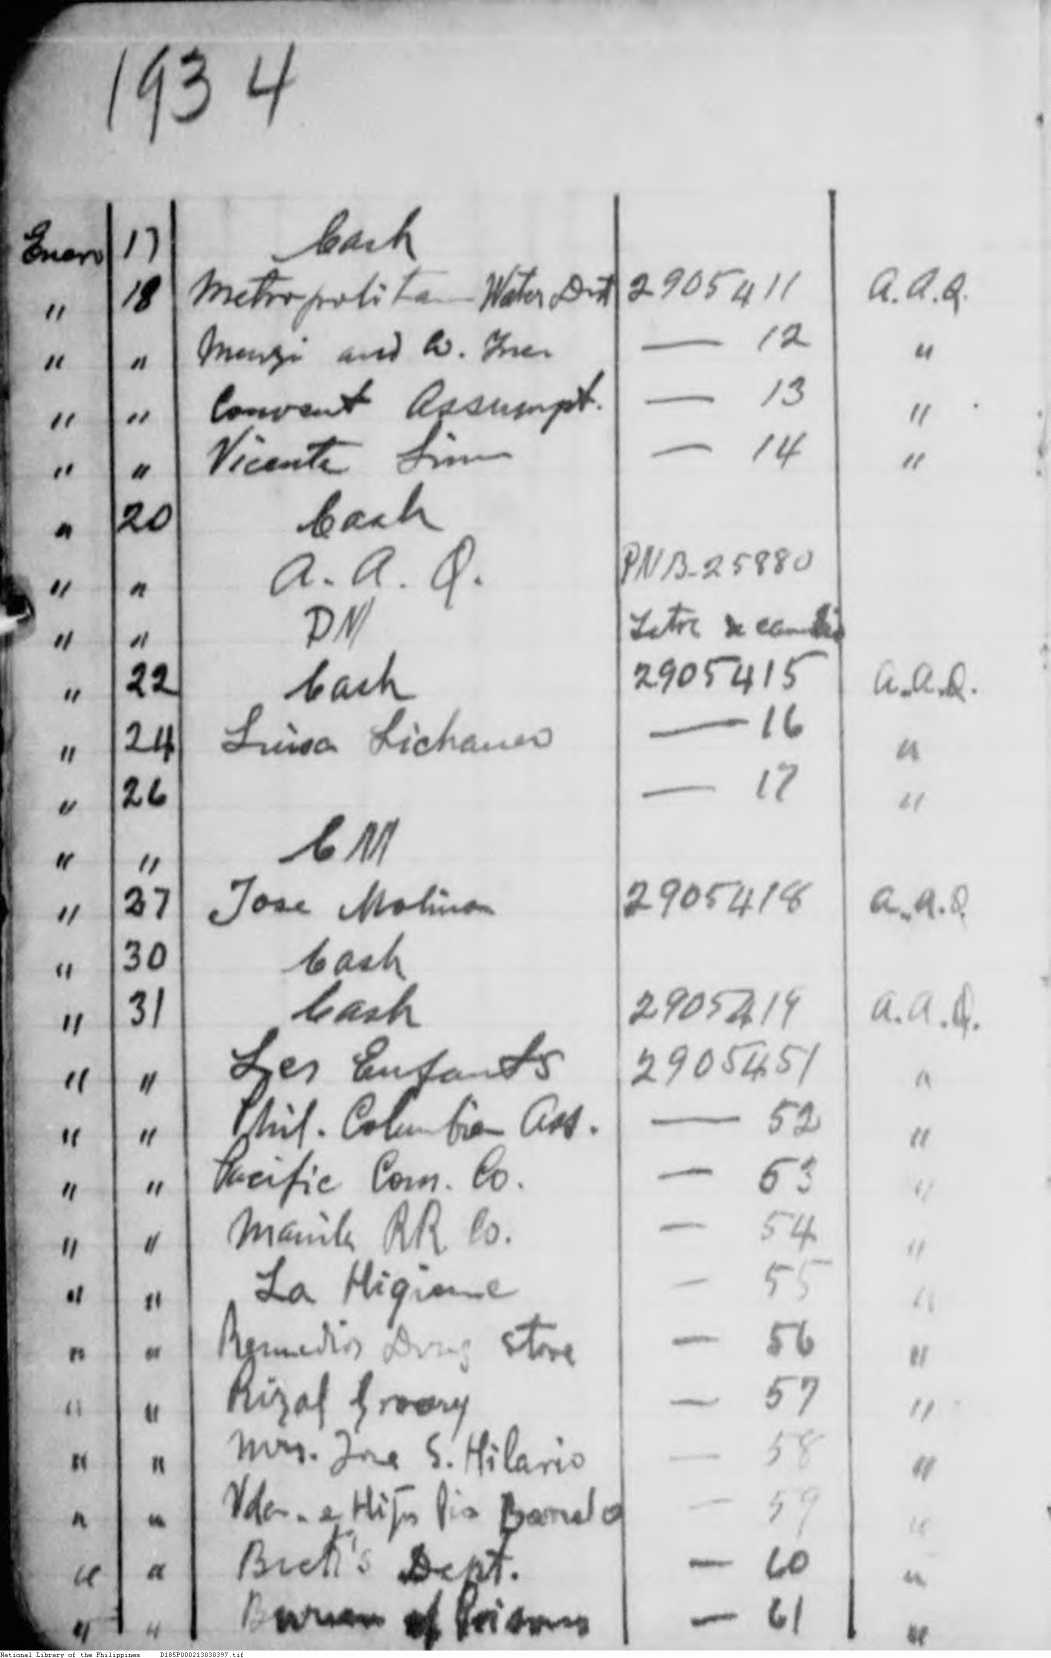 1934
Enero 17 Cash
" 18 Metropolitan Water Dist 2905411 A.A.Q.
" " and Co. — 12 "
" " Convent Assumpt. — 13 "
" " Vicente Lim — 14 "
" 20 Cash
" " A. A. Q. PNB-25880
" " PN Letra de cambio
" 22 Cash 2905415 A.A.Q.
" 24 Luisa Lichauco — 16 "
" 26 — 17 "
" " CM
" 27 Jose Molina 2905418 A.A.Q
" 30 Cash
" 31 Cash 2905419 A.A.Q.
" " Les Enfants 2905451 "
" " Phil. Columbian Ass. — 52 "
" " Pacific Com. Co. — 53 "
" " Manila RR Co. — 54 "
" " La Higiene — 55 "
" " Remedios Drug Store — 56 "
" " Rizal Grocery — 57 "
" " Mrs. Jose S. Hilario — 58 "
" " Vda. e Hijos Pio Barreto — 59 "
" " Dept. — 60 "
" " Bureau of Prisons — 61 "
National Library of the Philippines D185P000213838397.tif